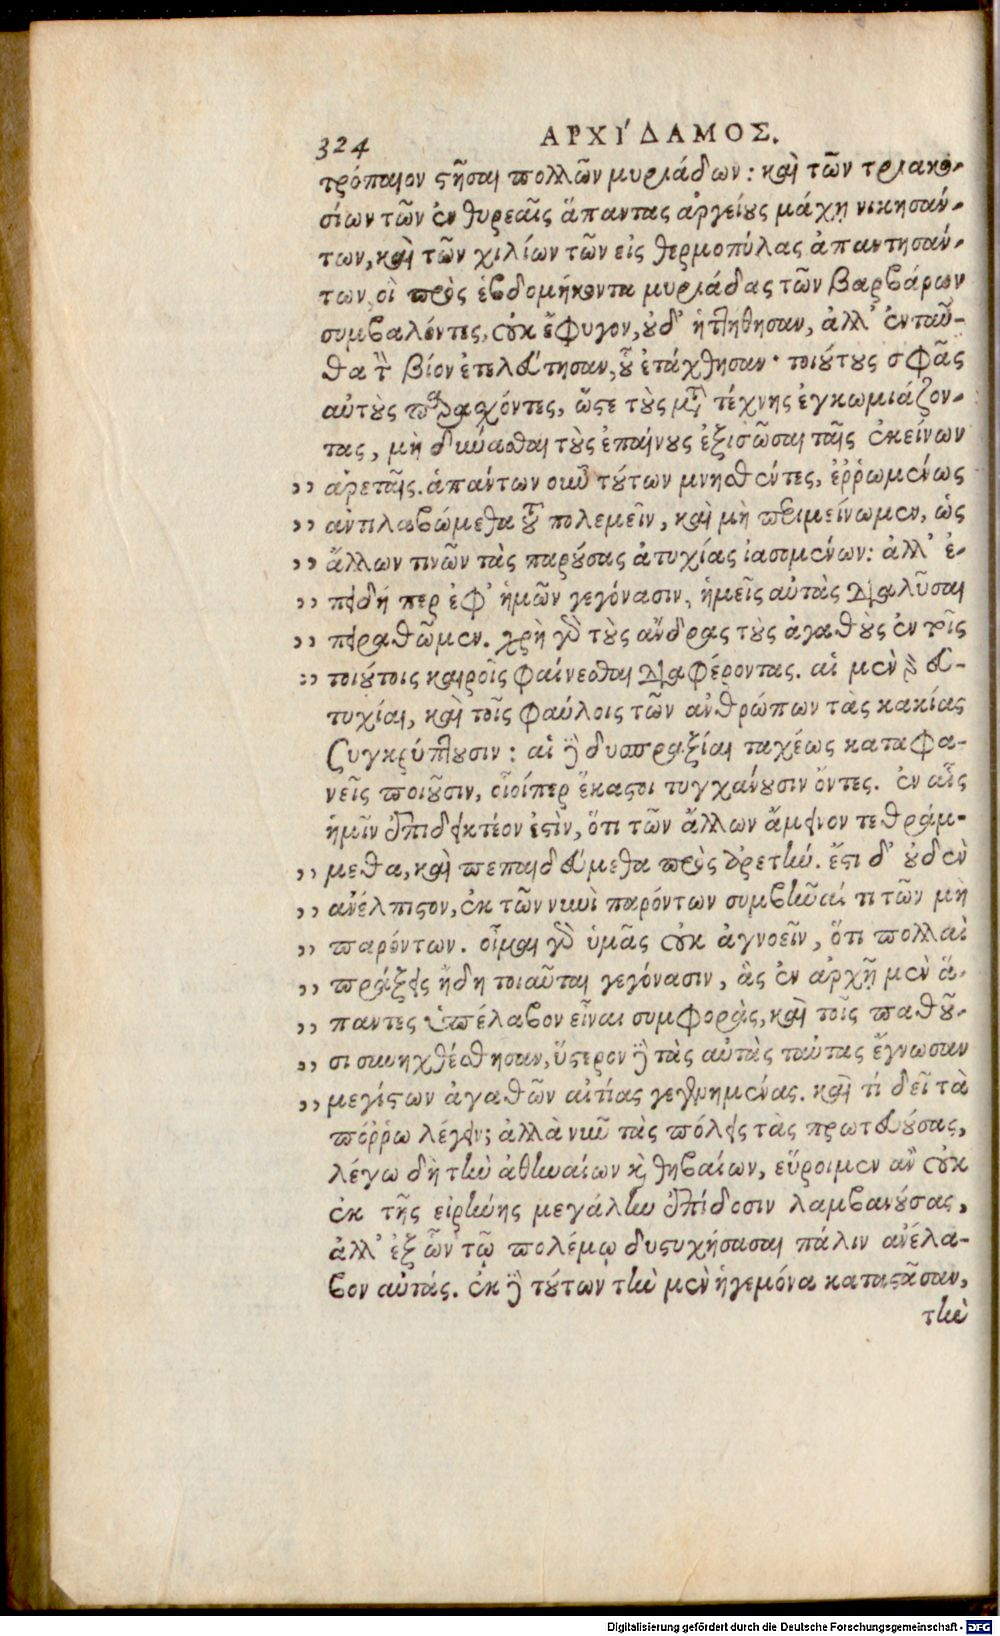 324 ΑΡΧΙ΄ΔΑΜΟΣ.
τρόπαιον ϛῆσαι πολλῶν μυριάδων: καὶ τῶν τριακο-
σίων τῶν ἐν θυρεαῖς ἅπαντας ἀργείους μάχῃ νικησάν-
των, καὶ τῶν χιλίων τῶν εἰς θερμοπύλας ἀπαντησάν-
των, οἳ πρὸς ἑβδομήκοντα μυριάδας τῶν βαρβάρων
συμβαλόντες, οὐκ ἔφυγον, οὐδ' ἡττήθησαν, ἀλλ' ἐνταῦ-
θα τὸν βίον ἐτελεύτησαν, οὗ ἐτάχθησαν· τοιούτους σφᾶς
αὐτοὺς παραχόντες, ὥϛε τοὺς μετὰ τέχνης ἐγκωμιάζον-
τας, μὴ δύναϑαι τοὺς ἐπαίνους ἐξισῶσαι ταῖς ἐκείνων
,, ἀρεταῖς. ἁπάντων οὖν τούτων μνηϑέντες, ἐῤῥωμένως
,, ἀντιλαβώμεθα τοῦ πολεμεῖν, καὶ μὴ περιμείνωμεν, ὡς
,, ἄλλων τινῶν τὰς παρούσας ἀτυχίας ἰασομένων: ἀλλ' ἐ-
,, πειδή περ ἐφ' ἡμῶν γεγόνασιν, ἡμεῖς αὐτὰς διαλῦσαι
,, πειραθῶμεν. χρὴ γὰρ τοὺς ἄνδρας τοὺς ἀγαθοὺς ἐν τοῖς
,, τοιούτοις καιροῖς φαίνεϑαι διαφέροντας. αἱ μὲν γὰρ εὐ-
τυχίαι, καὶ τοῖς φαύλοις τῶν ἀνθρώπων τὰς κακίας
συγκρύπτουσιν: αἱ δὲ δυσπραξίαι ταχέως καταφα-
νεῖς ποιοῦσιν, οἷοίπερ ἕκαϛοι τυγχάνουσιν ὄντες. ἐν αἷς
ἡμῖν ἐπιδεικτέον ἐϛὶν, ὅτι τῶν ἄλλων ἄμεινον τεθράμ-
,, μεθα, καὶ πεπαιδεύμεθα πρὸς ἀρετήν. ἔϛι δ' οὐδὲν
,, ἀνέλπιϛον, ἐκ τῶν νυνὶ παρόντων συμβῆναί τι τῶν μὴ
,, παρόντων. οἶμαι γὰρ ὑμᾶς οὐκ ἀγνοεῖν, ὅτι πολλαὶ
,, πράξεις ἤδη τοιαῦται γεγόνασιν, ἃς ἐν ἀρχῇ μὲν ἅ-
,, παντες ὑπέλαβον εἶναι συμφορὰς, καὶ τοῖς παθοῦ-
,, σι συνηχθέϑησαν, ὕϛερον δὲ τὰς αὐτὰς ταύτας ἔγνωσαν
,, μεγίϛων ἀγαθῶν αἰτίας γεγενημένας. καὶ τί δεῖ τὰ
πόῤῥω λέγειν; ἀλλὰ νῦν τὰς πόλεις τὰς πρωτευούσας,
λέγω δὴ τὴν ἀθηναίων καὶ θηβαίων, εὕροιμεν ἂν οὐκ
ἐκ τῆς εἰρήνης μεγάλην ἐπίδοσιν λαμβανούσας,
ἀλλ' ἐξ ὧν τῷ πολέμῳ δυϛυχήσασαι πάλιν ἀνέλα-
βον αὑτάς. ἐκ δὲ τούτων τὴν μὲν ἡγεμόνα καταϛᾶσαν,
τὴν
Digitalisierung gefördert durch die Deutsche Forschungsgemeinschaft - DFG